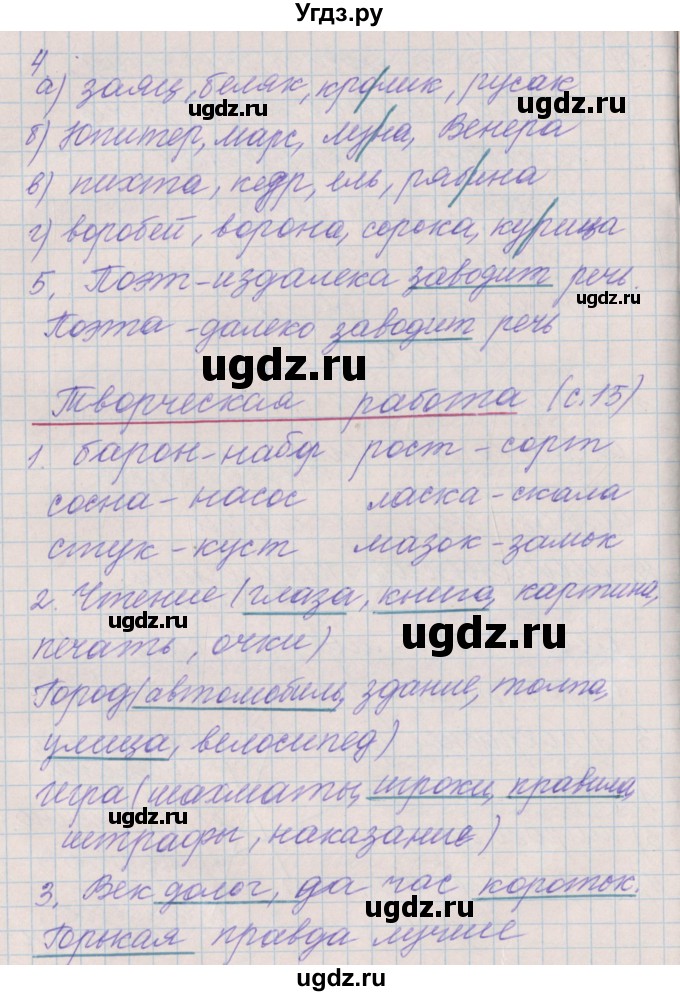 Угдз.ру
4
а) заяц, беляк, кролик, русак
ugdz.ru
б) Юпитер, марс, луна, Венера
в) пихта, кедр, ель, рябина
г) воробей, ворона, сорока, курица
5. Поэт-издалека заводит речь.
ugdz.ru
Поэта -далеко заводит речь
ugdz.ru
Творческая работа (с.15)
1. барон-набор рост-сорт
сосна-насос ласка-скала
стук-куст мазок-замок
ugdz.ru
2. Чтение (глаза, книга, картина,
ugdz.ru
печать, очки)
Город (автомобиль, здание, толпа,
улица, велосипед)
игра (шахматы, игроки, правила,
ugdz.ru
штрафы, наказание)
3. Век долог, да час короток.
ugdz.ru
Горькая правда лучше
ugdz.ru